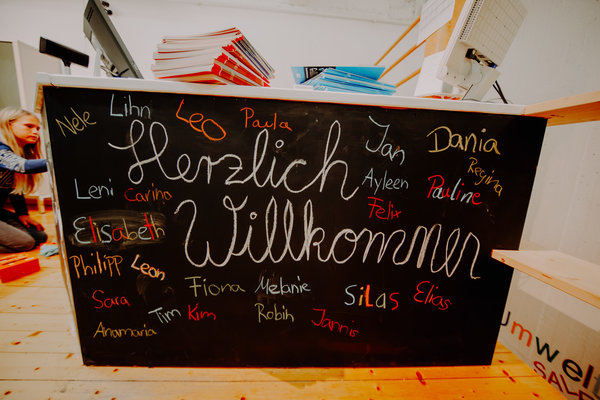 Nele Lihn Leo Paula Jan Dania
Herzlich
Regina
Leni Carina Ayleen Pauline
Felix
Elisabeth Willkommen
Philipp Leon
Sara Fiona Melanie Silas Elias
Tim Kim Robin Jannis
Anamaria
umwelt